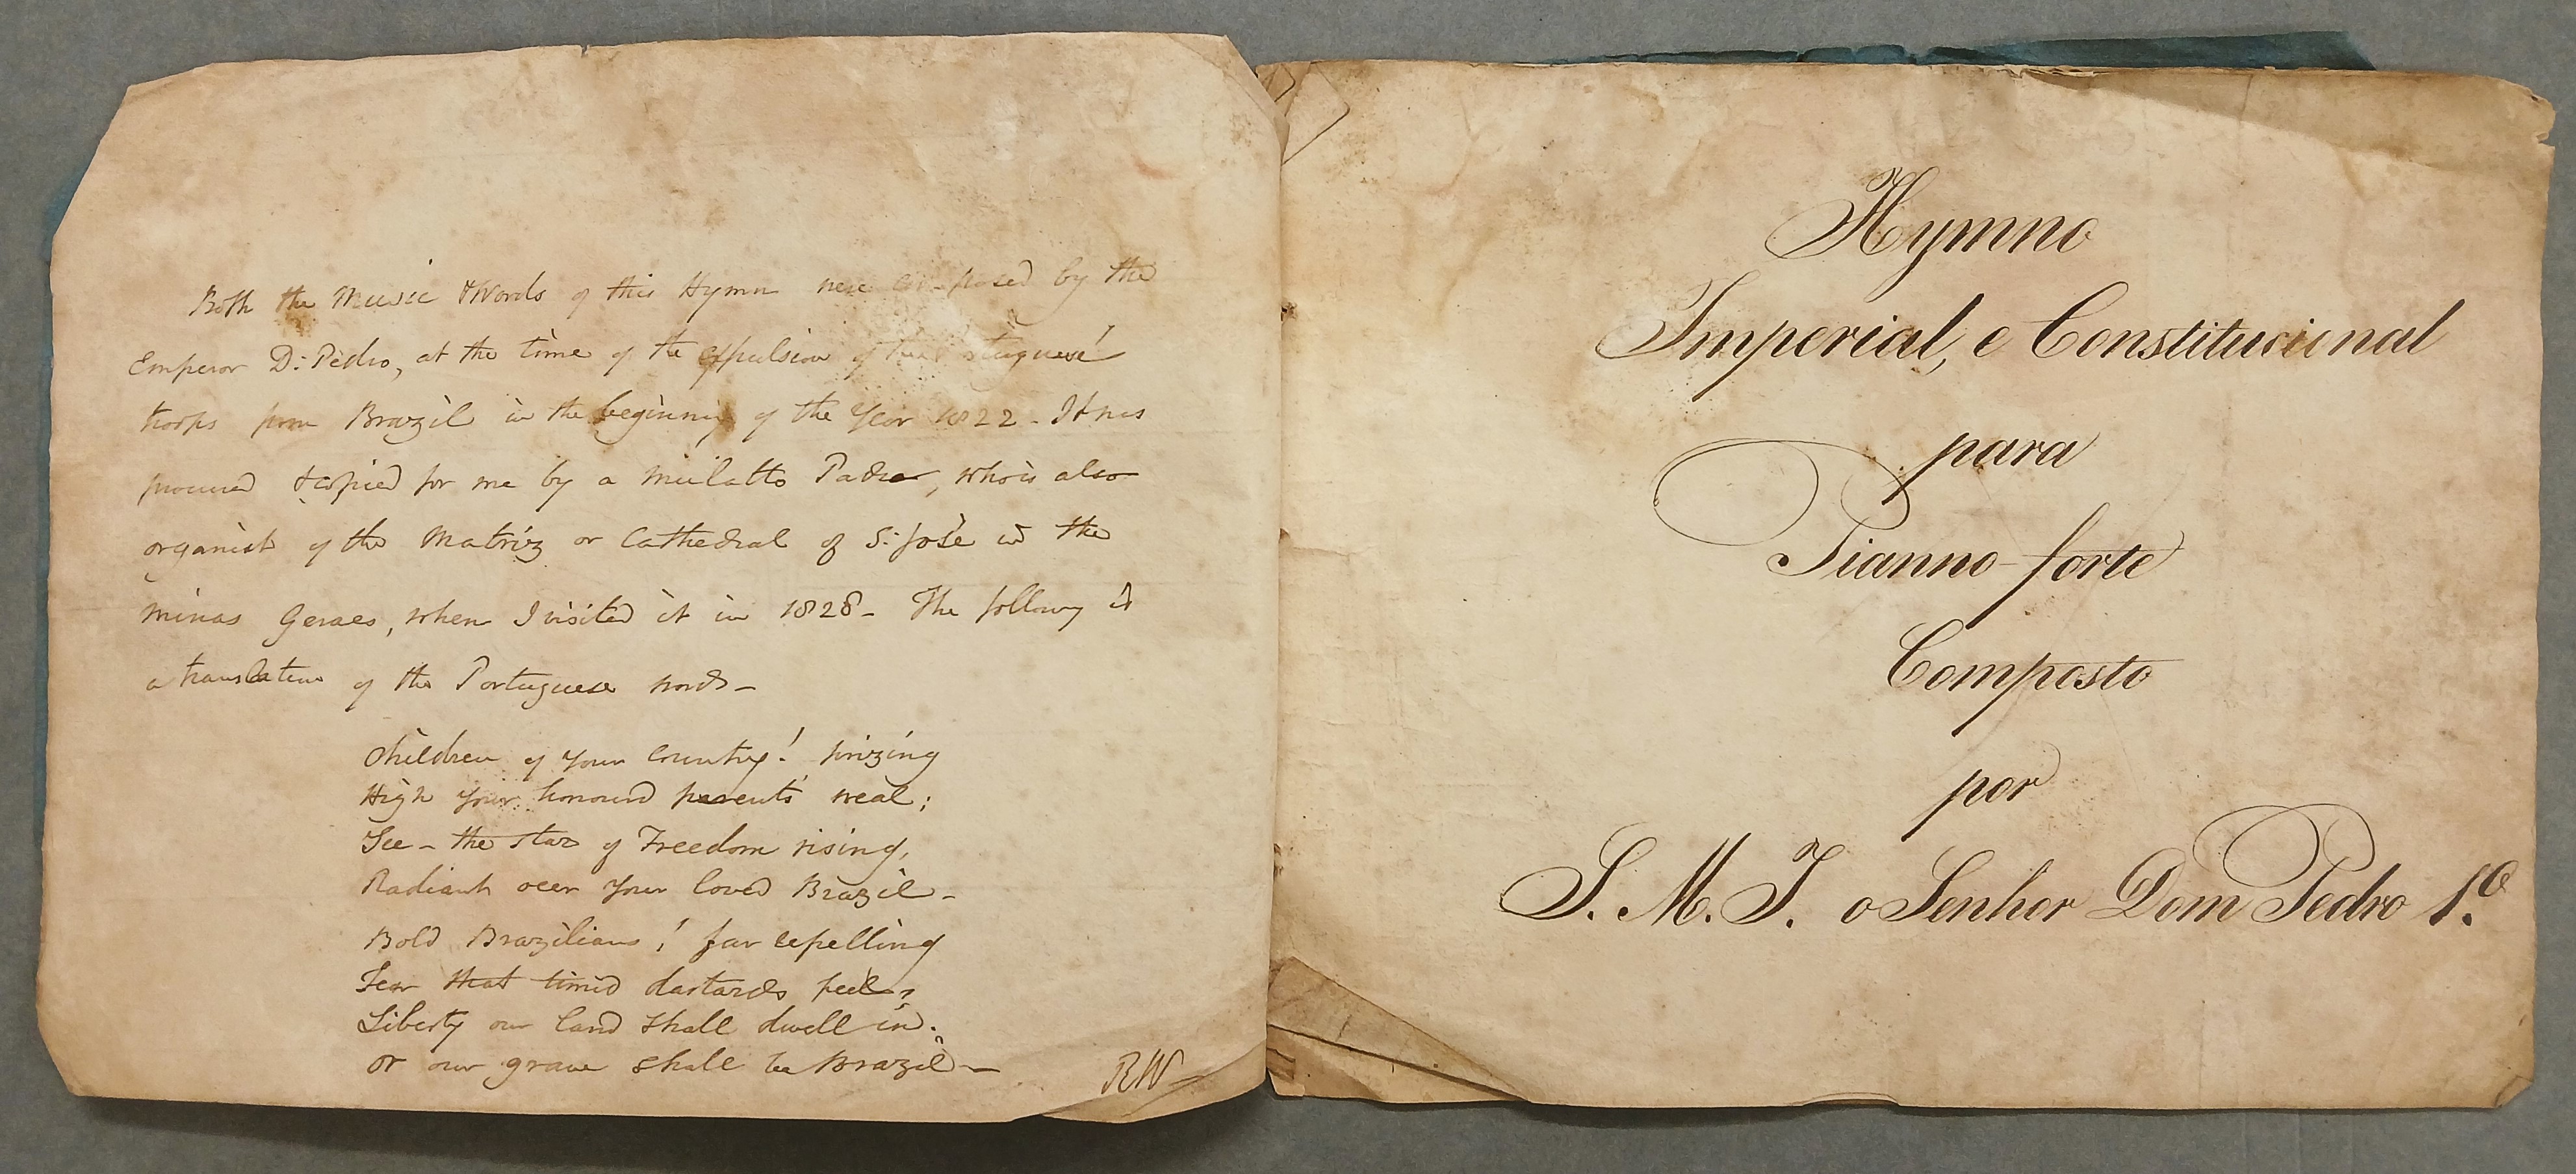 Both the Music & Words of this Hymn were composed by the
Emperor D: Pedro, at the time of the expulsion of the Portuguese
troops from Brazil in the beginning of the Year 1822 - It was
procured & copied for me by a mulatto Padre, who is also
organist of the Matriz or Cathedral of S: José in the
Minas Geraes, when I visited it in 1828 - The following is
a translation of the Portuguese words -
Children of your Country! prizing
High your honourd parents' weal;
See - the star of Freedom rising,
Radiant oer your loved Brazil -
Bold Brazilians! far repelling
Fear that timid dastards feel,
Liberty our land shall dwell in.
or our grave shall be Brazil -
RW
Hymno
Imperial, e Constitucional
para
Pianno-forte
Composto
por
S. M. I. o Senhor Dom Pedro 1.º